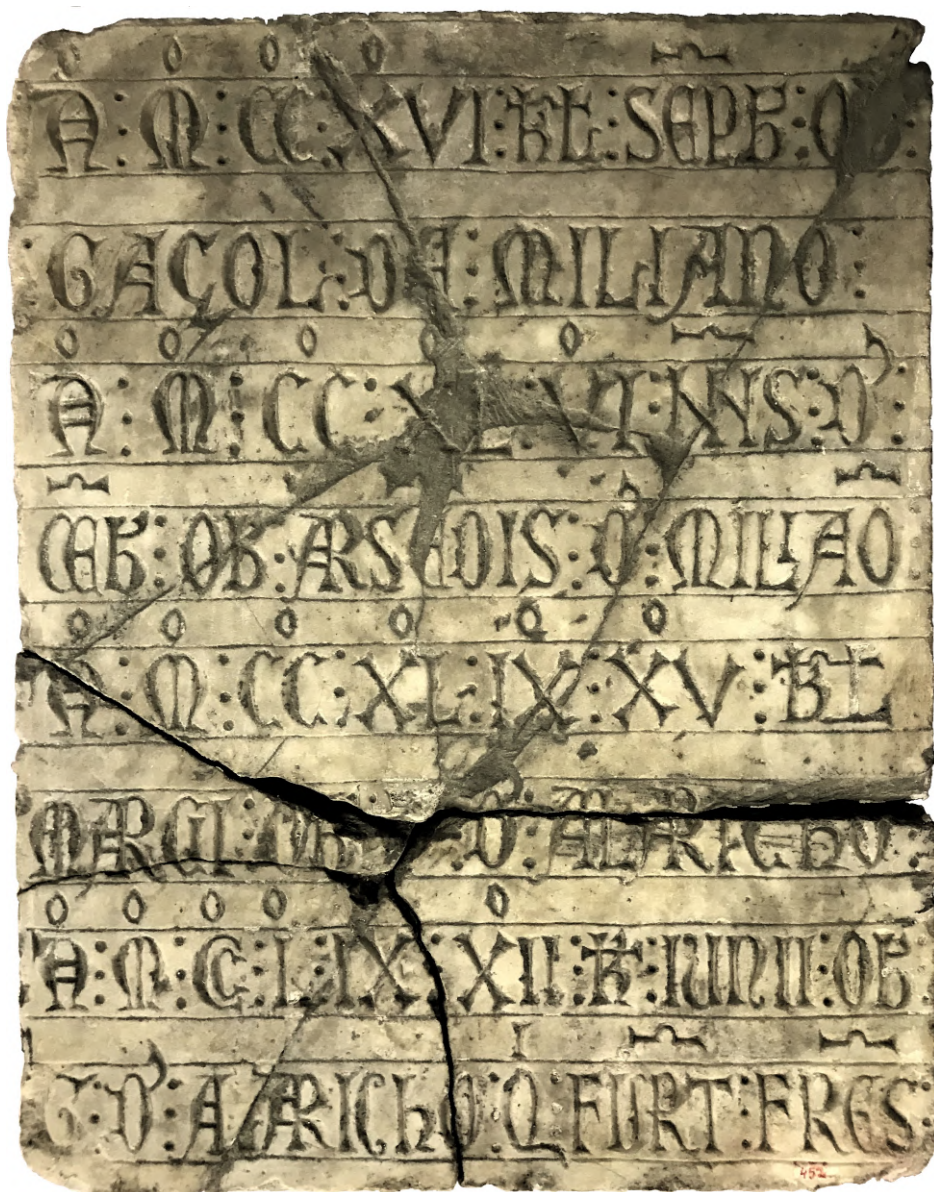 A : M : CC : XVI : KL : SEPB : OB :
: GAÇOL : DE : MILIANO :
A : M : CC : XL : VI : NNS : D' :
: OB : D' : MILIAO
A : M : CC : XL : IX : XV : KL
MARCII : OB : D' : ALARICHO :
A : M : CC : LIX : XII : KL : IUNII : OB :
G : D' : ALARICHO : Q : FURT : FRES :
452